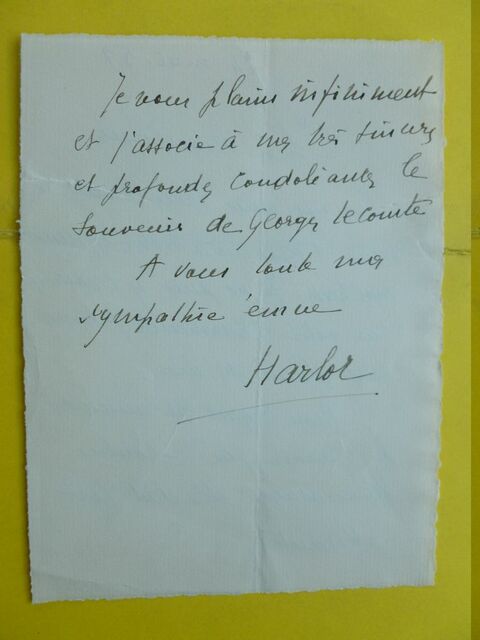 Je vous plains infiniment
et j'associe à mes très sincères
et profondes condoléances le
souvenir de Georges Lecomte
A vous toute ma
sympathie émue
Harlor